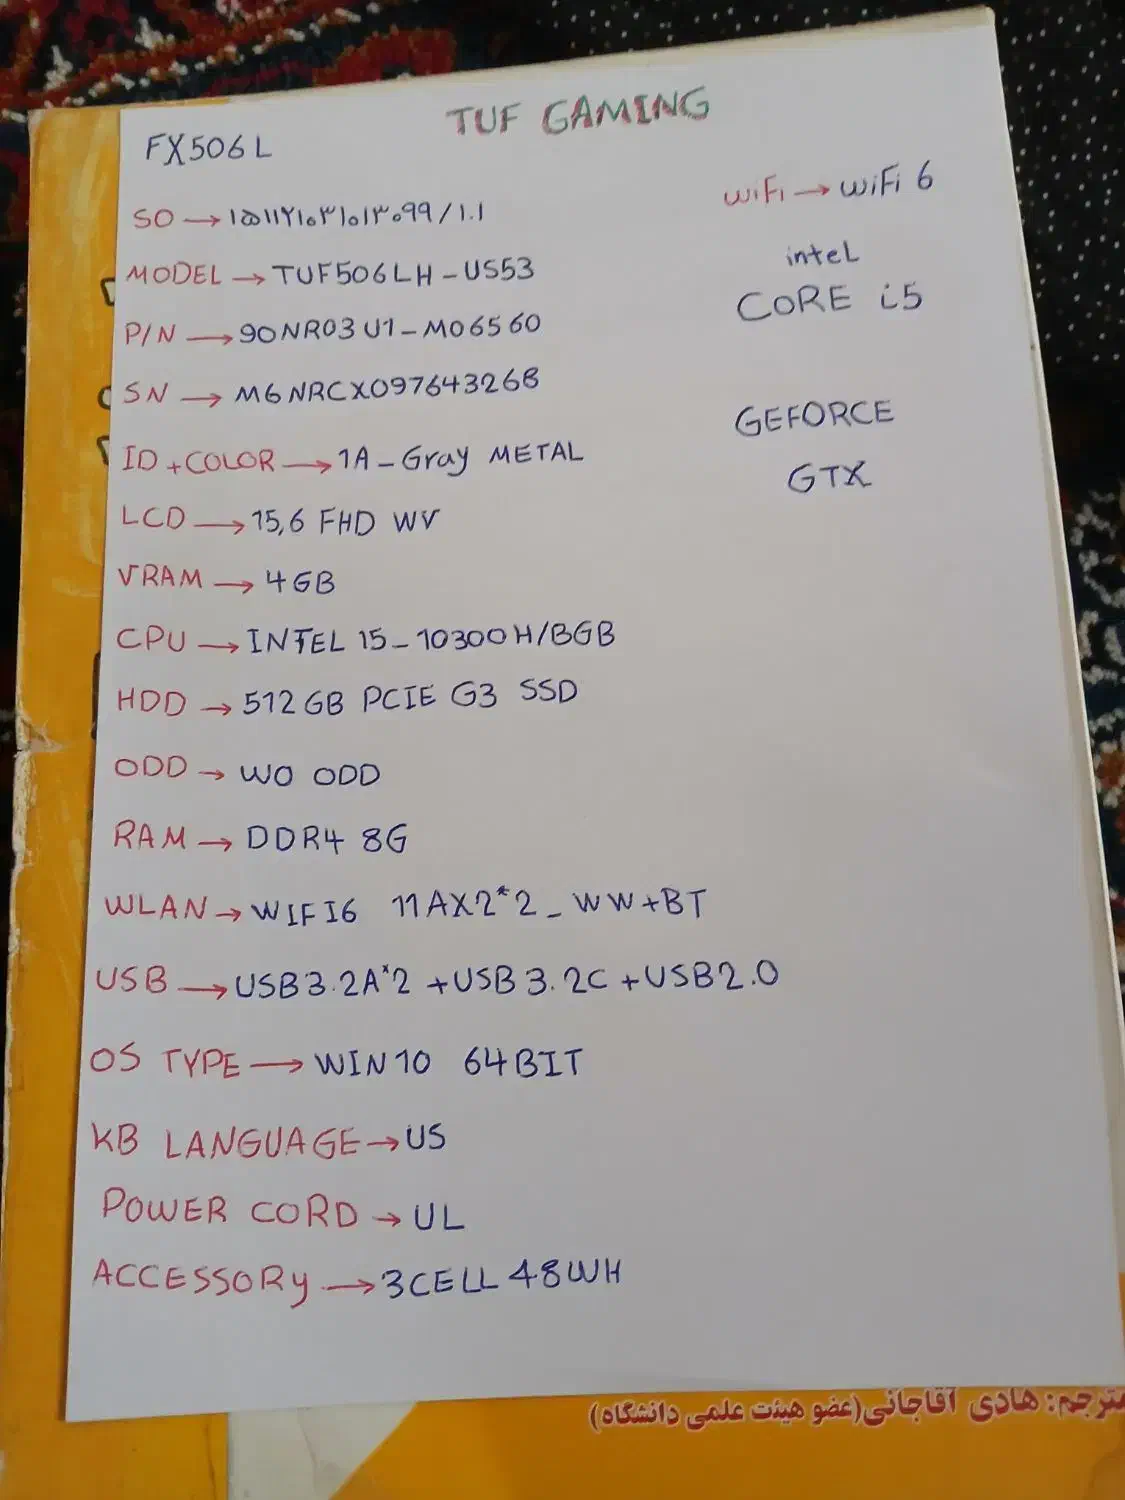 TUF GAMING
FX506L
WiFi → WiFi 6
SO → ۱۵۱۱۲۱۰۳۱۰۱۳۰۹۹/۱.۱
intel
MODEL → TUF506LH-US53
CORE i5
P/N → 90NR03U1-M06560
SN → M6NRCX09764326B
GEFORCE
ID+COLOR → 1A-Gray METAL
GTX
LCD → 15,6 FHD WV
VRAM → 4GB
CPU → INTEL I5-10300H/BGB
HDD → 512GB PCIE G3 SSD
ODD → WO ODD
RAM → DDR4 8G
WLAN → WIFI6 11AX2*2-WW+BT
USB → USB3.2A*2 +USB3.2C+USB2.0
OS TYPE → WIN10 64BIT
KB LANGUAGE → US
POWER CORD → UL
ACCESSORY → 3CELL 48WH
مترجم: هادی آقاجانی(عضو هیئت علمی دانشگاه)